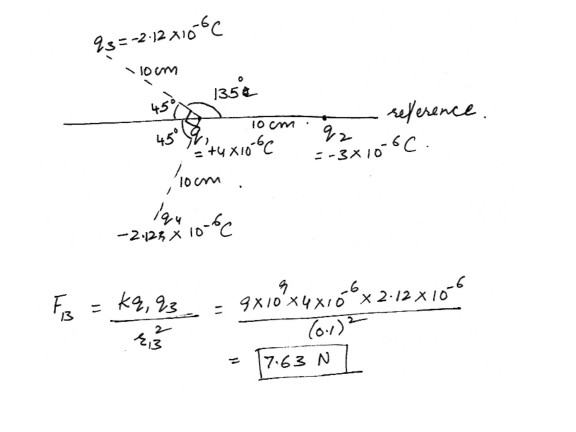 q₃ = -2.12 × 10⁻⁶ C
10 cm
135°
45°
reference.
10 cm.
q₂
= -3 × 10⁻⁶ C.
45°
q₁
= +4 × 10⁻⁶ C
10 cm.
q₄
-2.12 × 10⁻⁶ C
F₁₃ = kq₁q₃ / r₁₃² = 9×10⁹ × 4×10⁻⁶ × 2.12 × 10⁻⁶ / (0.1)²
= 7.63 N